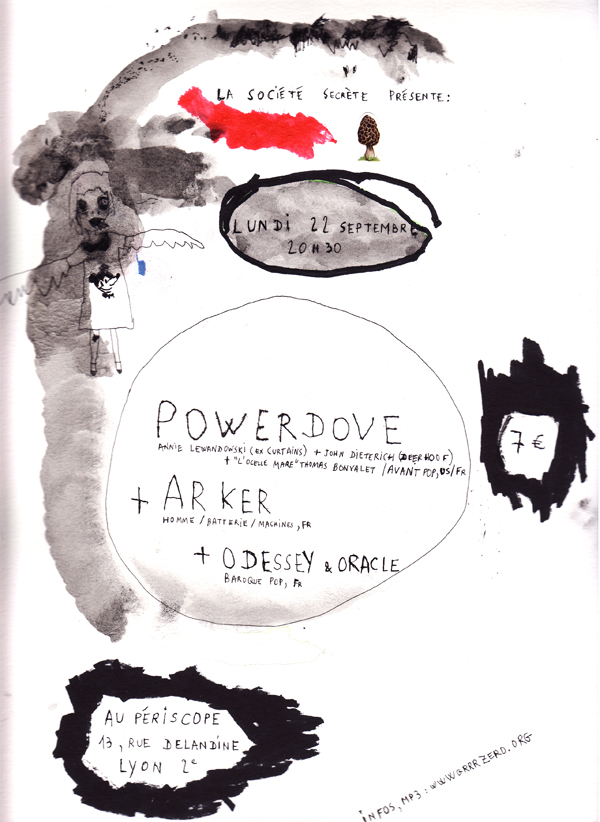 LA SOCIÉTÉ SECRÈTE PRÉSENTE:
LUNDI 22 SEPTEMBRE
20H30
POWERDOVE
ANNIE LEWANDOWSKI (EX CURTAINS) + JOHN DIETERICH (DEERHOOF)
+ "L'OCELLE MARE" THOMAS BONVALET / AVANT POP, US/FR
7€
+ ARKER
HOMME / BATTERIE / MACHINES, FR
+ ODESSEY & ORACLE
BAROQUE POP, FR
AU PÉRISCOPE
13, RUE DELANDINE
LYON 2e
INFOS, MP3 : WWW.GRRRZERO.ORG